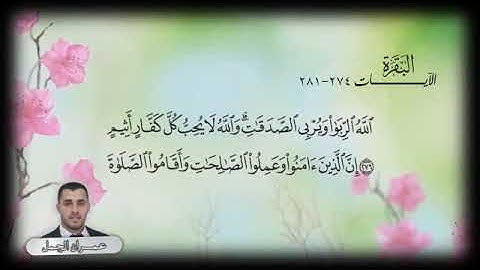 البَقَرَة
الآيات ٢٧٤-٢٨١
ٱللَّهُ ٱلرِّبَوٰا۟ وَيُرْبِى ٱلصَّدَقَٰتِ ۗ وَٱللَّهُ لَا يُحِبُّ كُلَّ كَفَّارٍ أَثِيمٍ
﴿٢٧٦﴾ إِنَّ ٱلَّذِينَ ءَامَنُوا۟ وَعَمِلُوا۟ ٱلصَّٰلِحَٰتِ وَأَقَامُوا۟ ٱلصَّلَوٰةَ
عمران الجمل